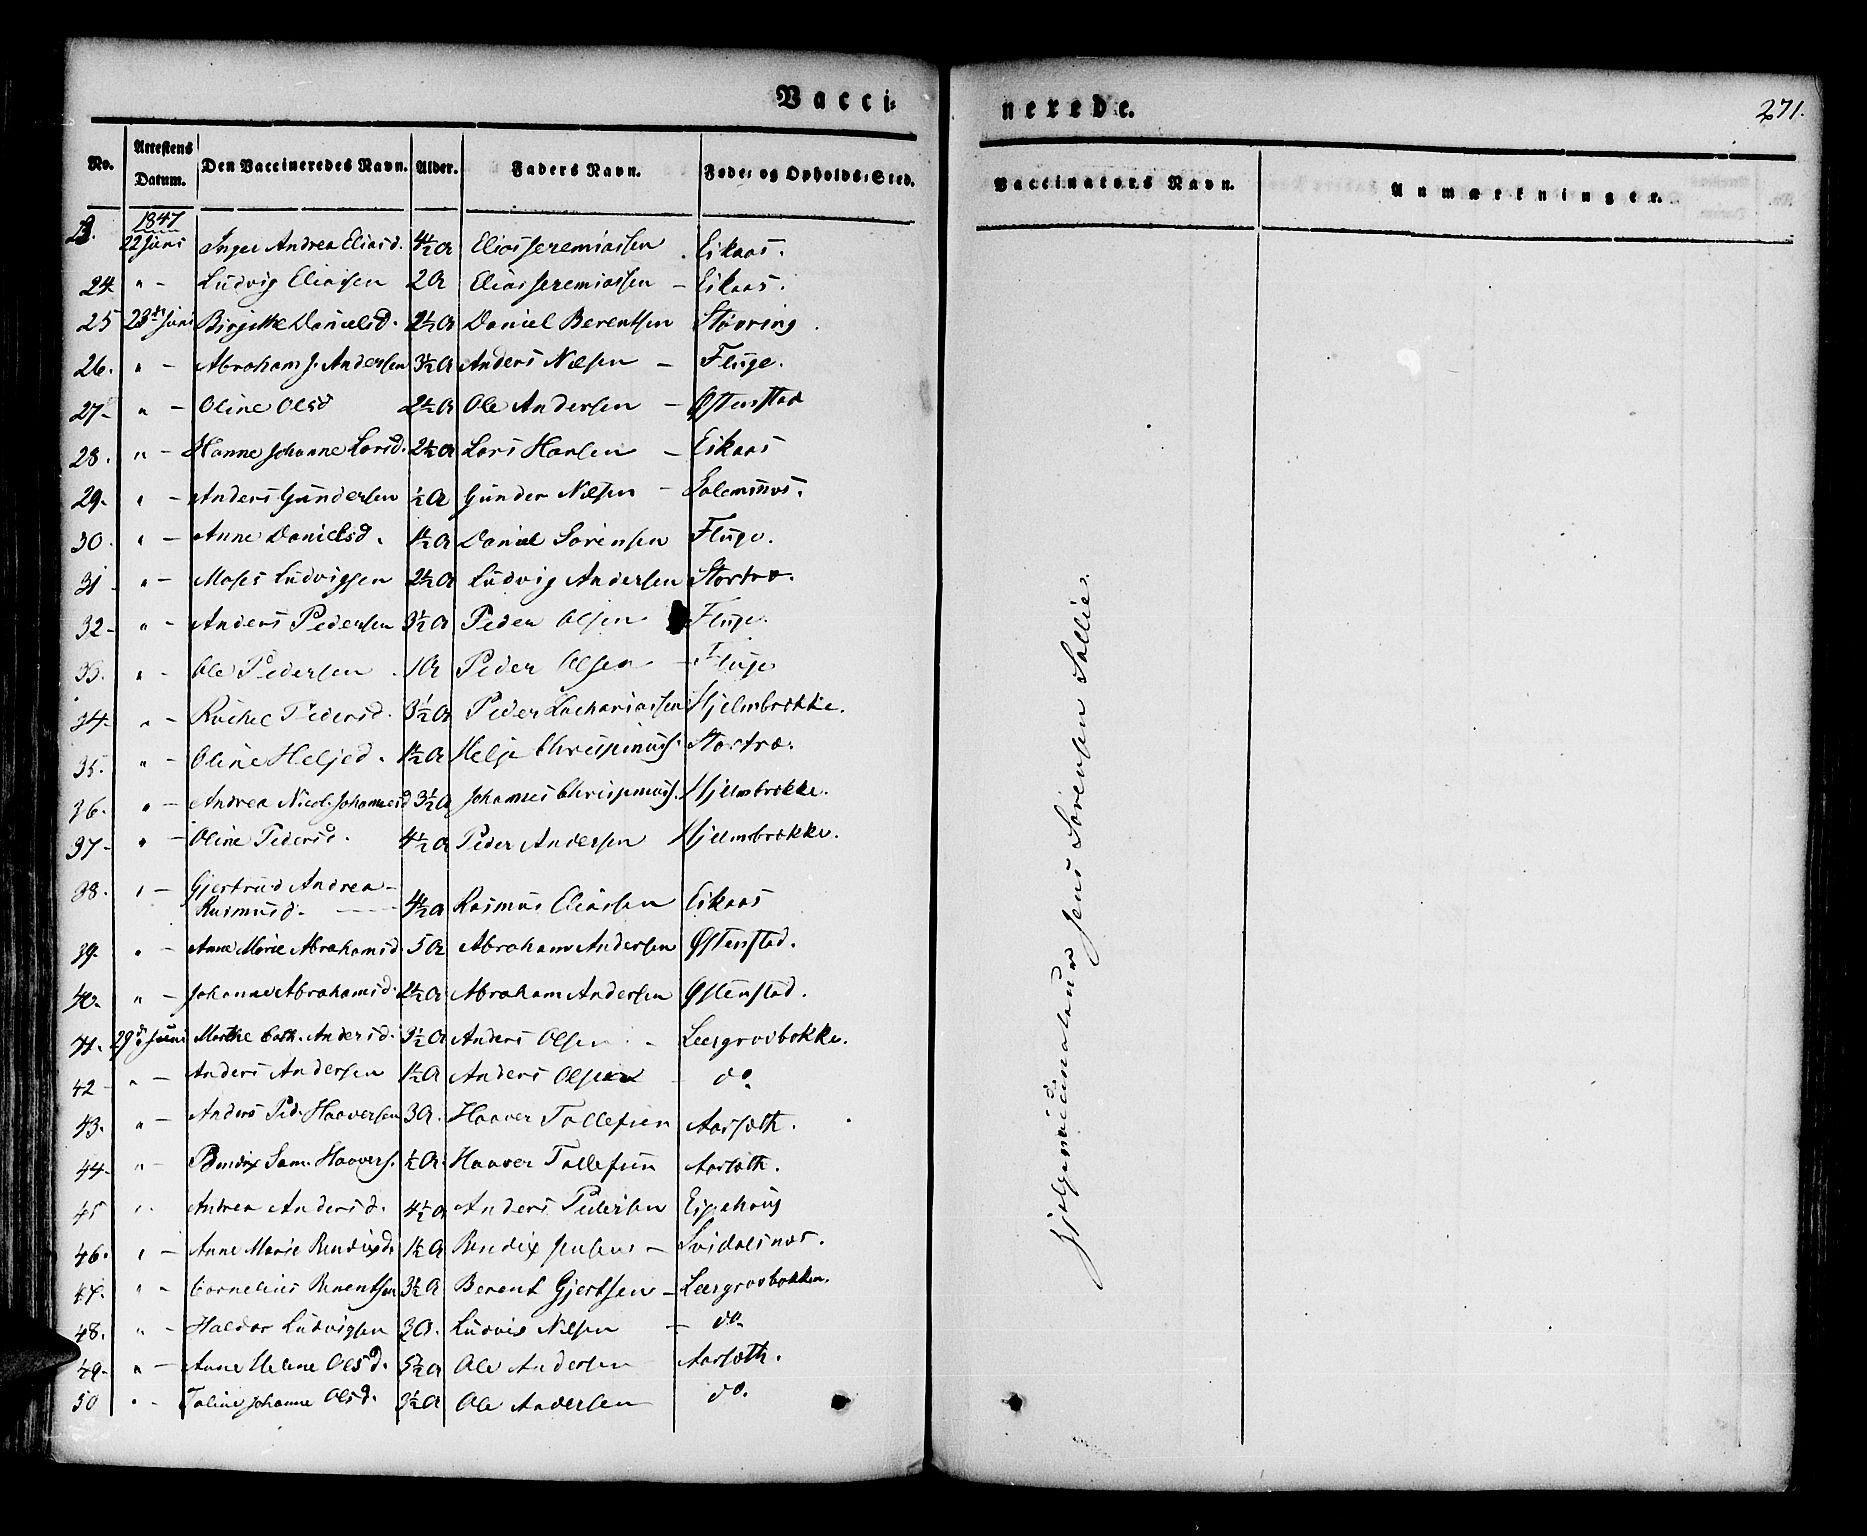 Vacci-
nerede.
271.
No. Attestens Datum. Den Vaccineredes Navn. Alder. Faders Navn. Føde- og Opholds-Sted.
Vaccinators Navn. Anmærkninger.
1847
23. 22 Juni Inger Andrea Eliasd. 4½ A Elias Jeremiassen Eikaas.
24 " - Ludvig Eliassen 2 A Elias Jeremiassen - Eikaas.
25 23de Juni Birgitte Danielsd. 2½ A Daniel Berentsen Støvring.
26. " - Abraham J. Andersen 3½ A Anders Nilsen - Fluge.
27 - " - Oline Olsd 2½ A Ole Andersen - Østenstad
28. " - Hanne Johanne Larsd. 2½ A Lars Hansen - Eikaas
29. " - Anders Gundersen ½ A Gunder Nilsen -
30. " - Anne Danielsd. 1½ A Daniel Sørensen Fluge.
31 " - Moses Ludvigsen 2½ A Ludvig Andersen Stostræ.
32 - " - Anders Pedersen 3½ A Peder Olsen Fluge.
33. " - Ole Pedersen. 1 A Peder Olsen - Fluge
34. " - Rachel Pedersd. 3½ A Peder Zachariassen Hjelmbrekke.
35. " - Oline Heljed. 1½ A Helje Chrispinuss. Stostræ.
36. " - Andrea Nicol. Johannesd 3½ A Johannes Chrispinuss. Hjelmbrekke.
37 - " - Oline Pedersd. 4½ A Peder Andersen Hjelmbrekke.
38. " - Gjertrud Andrea -
Rasmusd. - 4½ A Rasmus Eliassen Eikaas
39. " - Anne Marie Abrahamsd. 5 A Abraham Andersen Østenstad.
40. " - Johanne Abrahamsd. 2½ A Abraham Andersen Østenstad.
41. 29de Juni Marthe Cath. Andersd. 3½ A Anders Olsen - Leegrovbakke.
42 - " - Anders Andersen 1½ A Anders Olsen - do.
43. " - Anders Ped. Haaversen 3 A. Haaver Tollefsen Aarseth.
44 - " - Bendix Sam. Haavers. ½ A. Haaver Tollefsen Aarseth.
45 " - Andrea Andersd. 4½ A Anders Pedersen Eigehaug
46. " - Anne Marie Bendixd. 1½ A Bendix Jensen - Svidalsnæs.
47. " - Cornelius Berentsen 3½ A Berent Gjertsen - Leegrovbakken.
48. " - Haldor Ludvigsen 3 A. Ludvig Nilsen - do.
49. " - Anne Helene Olsd. 5½ A Ole Andersen Aarseth.
50 " - Taline Johanne Olsd. 3½ A Ole Andersen do.
Hjelpevaccinateur Jens Sørensen Sollie.